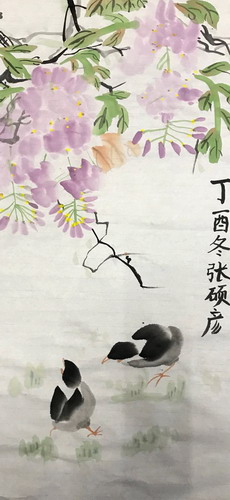 丁酉冬张硕彦